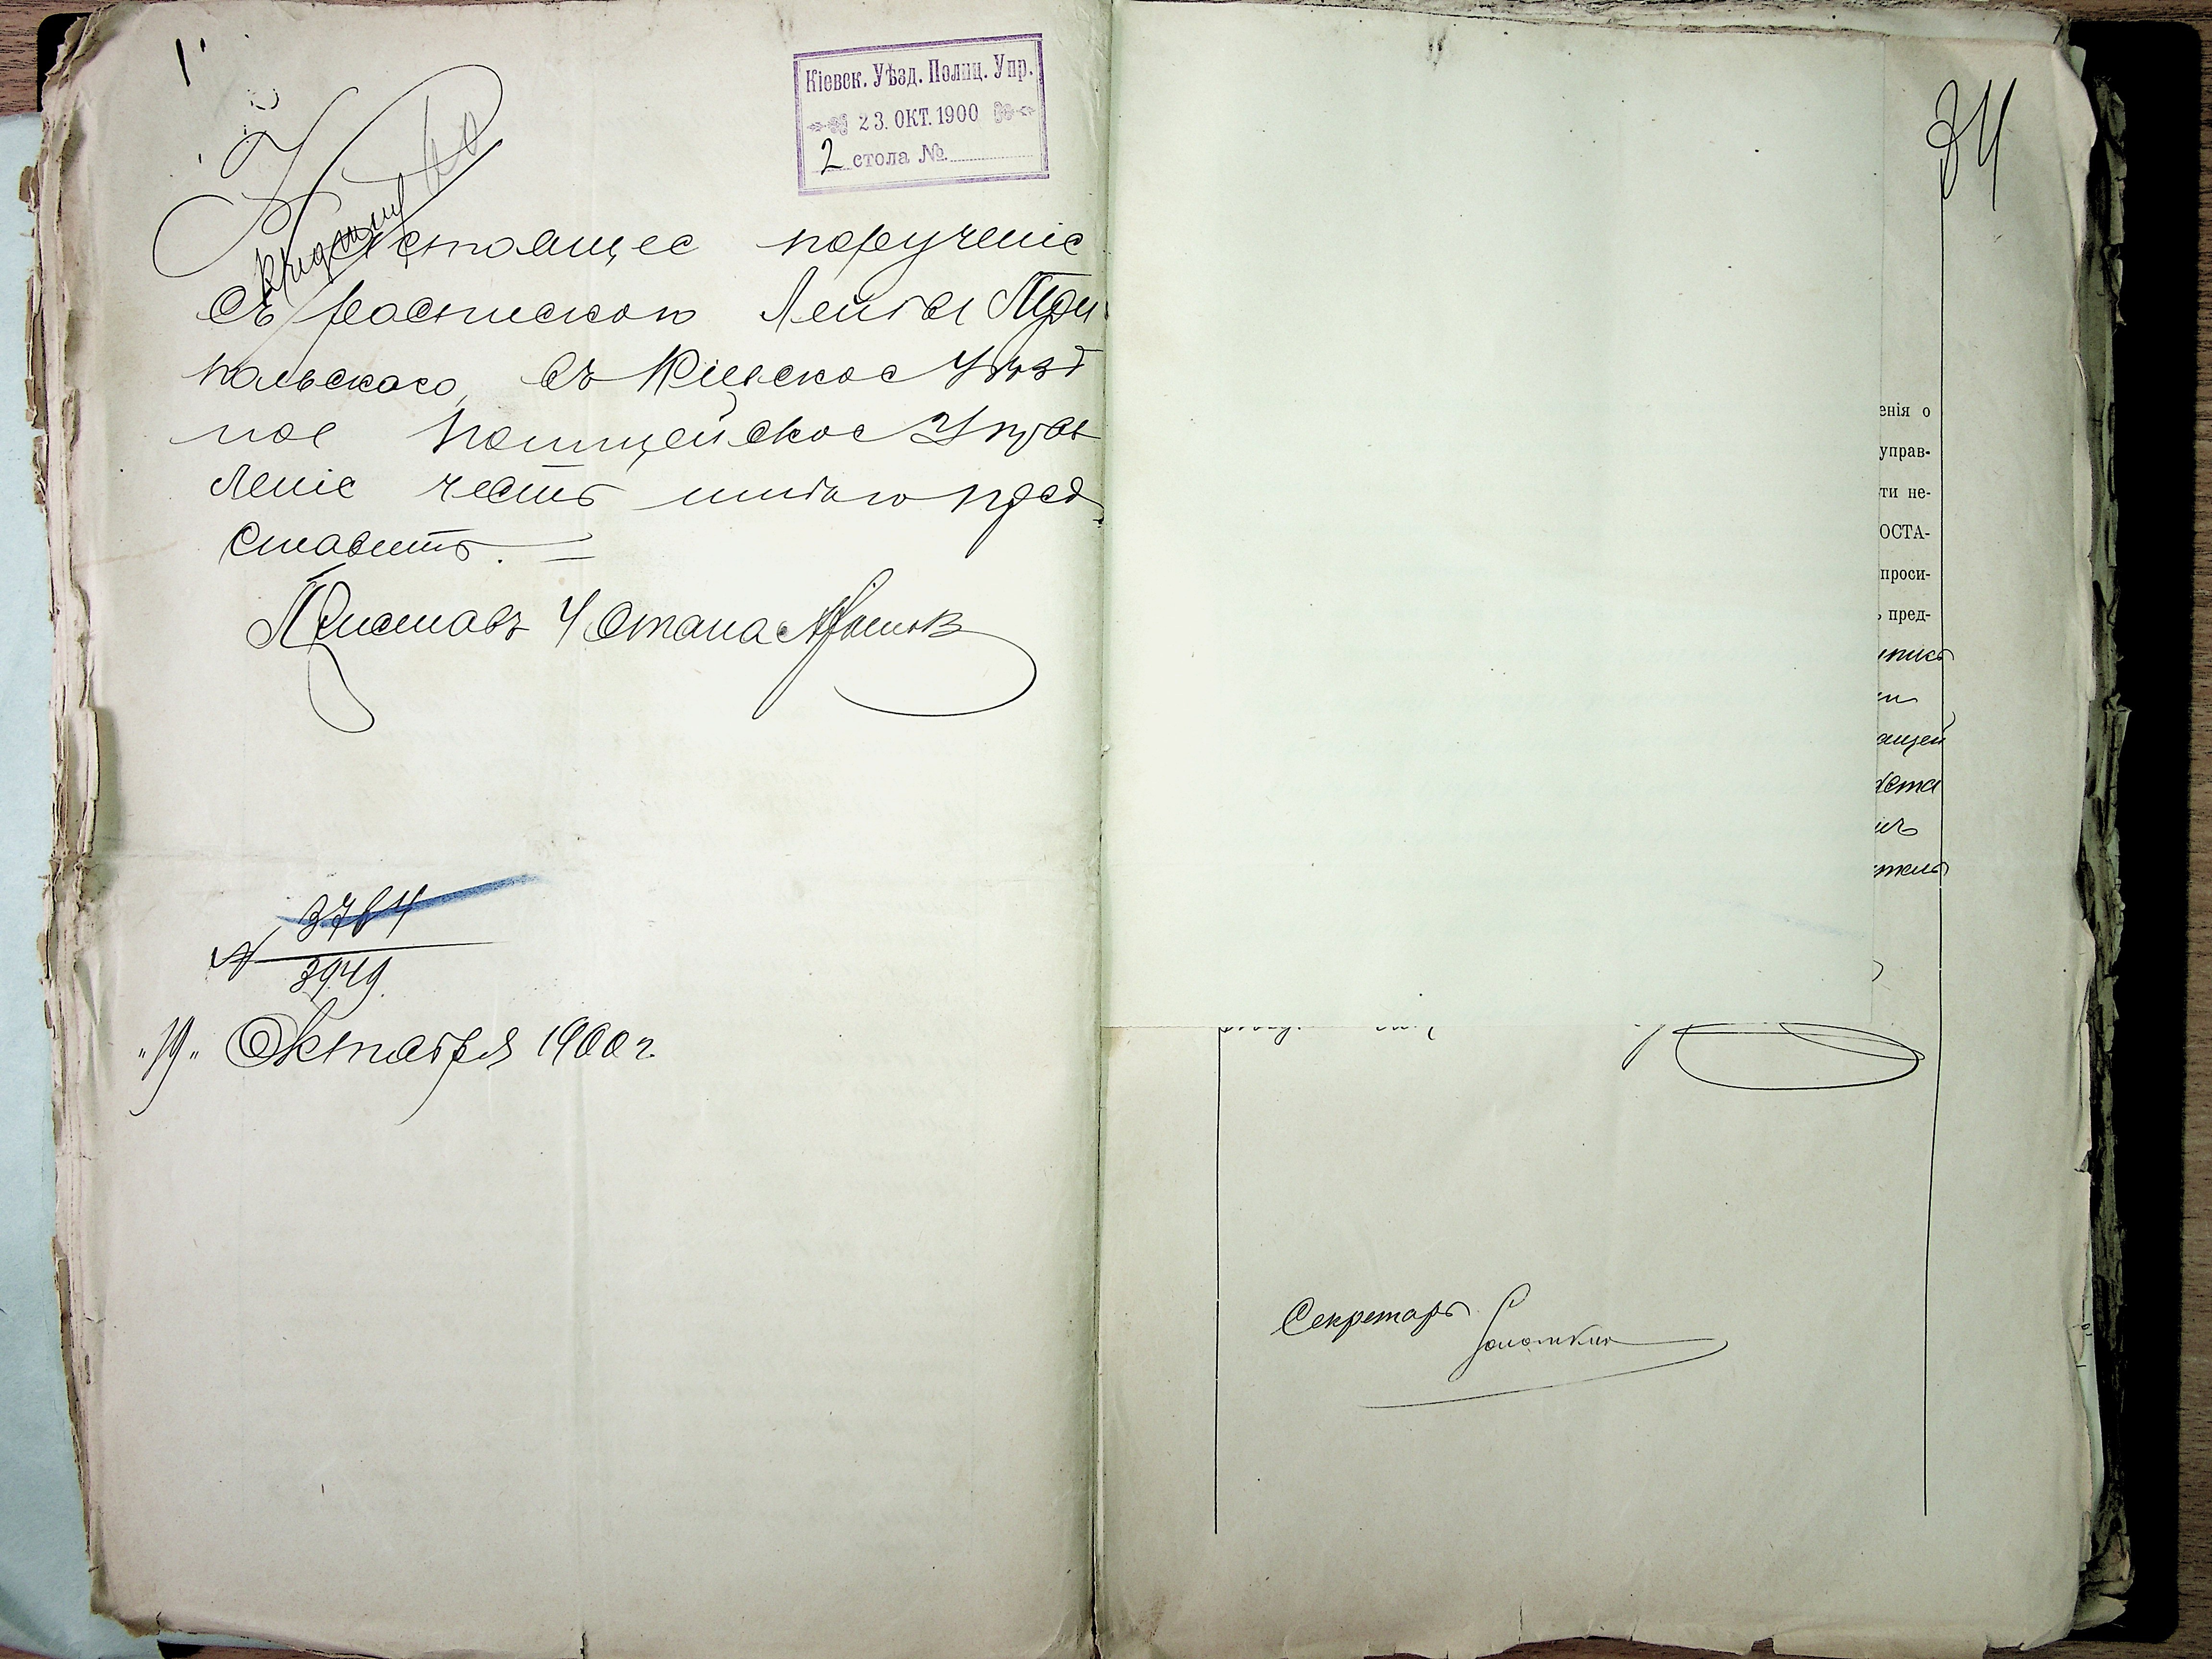 Кіевск. Уѣзд. Полиц. Упр.
23. ОКТ. 1900
2 стола №
Настоящее порученіе
съ роспискою Лейбы Три
польскаго, въ Кіевское Уѣзд
ное Полицейское Управ
леніе честь имѣю пред
ставить.
Приставъ 4 Стана
№ 3784
3949
"19" Октября 1900 г.
34
енія о
управ-
ти не-
ОСТА-
проси-
ь пред-
Секретарь